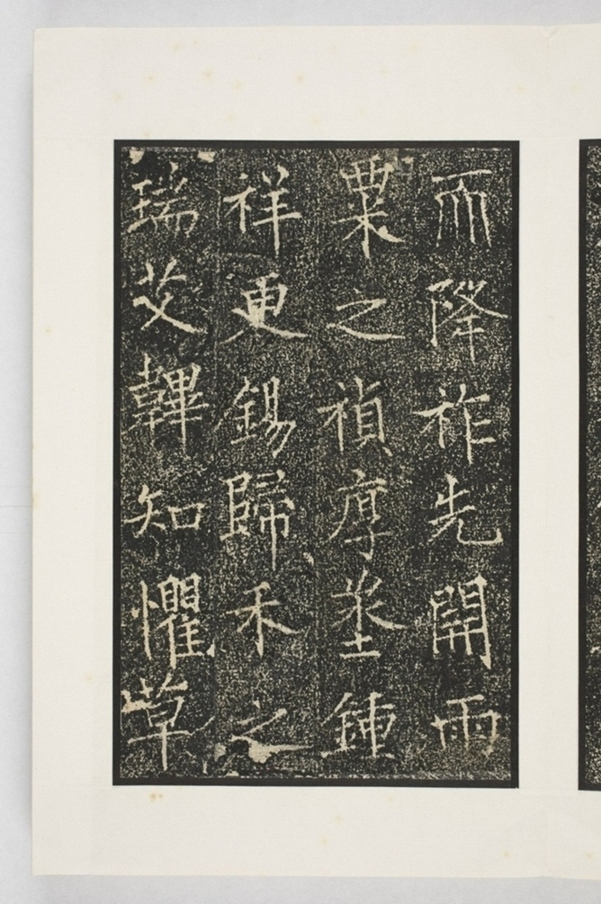 而降祚先開雨
粟之禎厚埊鍾
祥更錫歸禾之
瑞艾韠知懼草